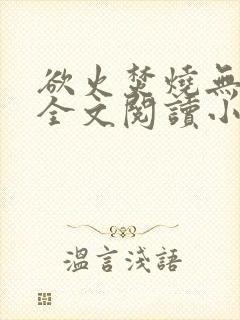 欲火焚燒無
全文閱讀小
溫言淺語